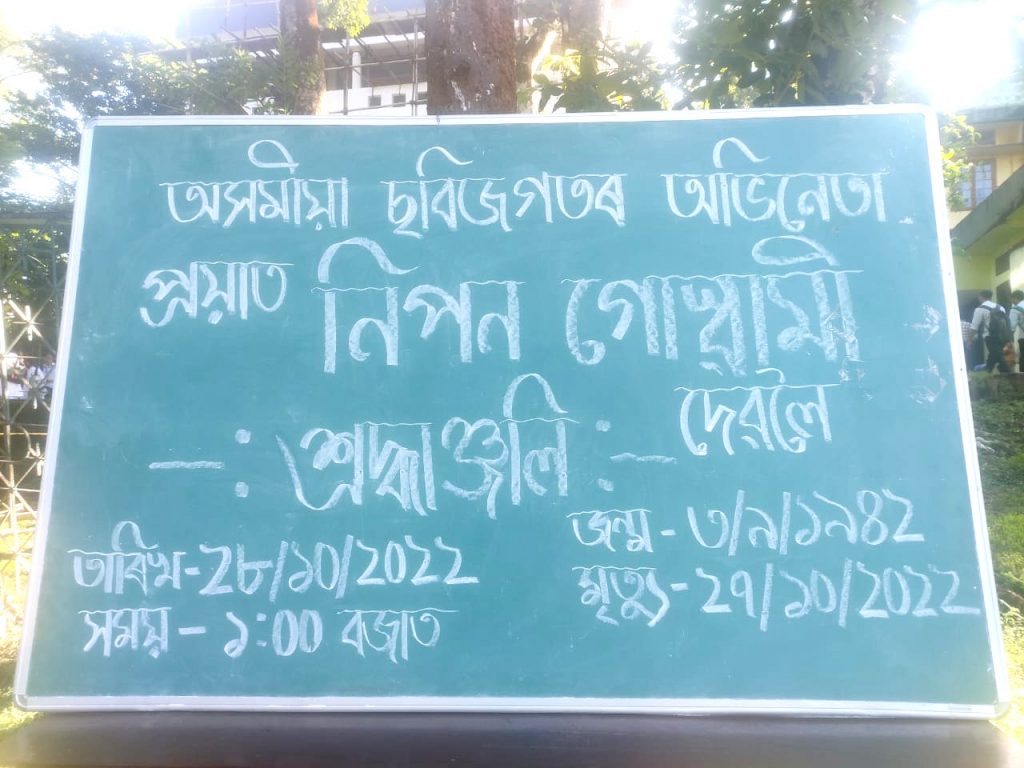 অসমীয়া ছবিজগতৰ অভিনেতা
প্ৰয়াত নিপন গোস্বামী
দেৱলৈ
—: শ্ৰদ্ধাঞ্জলি :—
তাৰিখ-২৮/১০/২০২২
সময় – ১:00 বজাত
জন্ম - ৩/৯/১৯৪২
মৃত্যু - ২৭/১০/২০২২